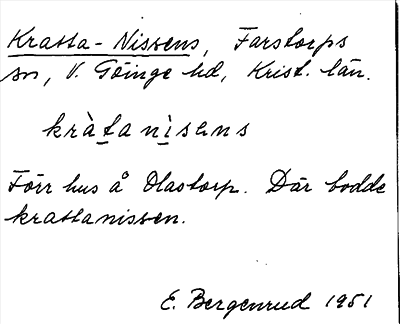 Kratta-Nissens, Farstorps
sn, V. Göinge hd, Krist. län.
kràtanìsɛns
Förr hus å Olastorp. Där bodde
krattanissen.
E. Bergenrud 1951